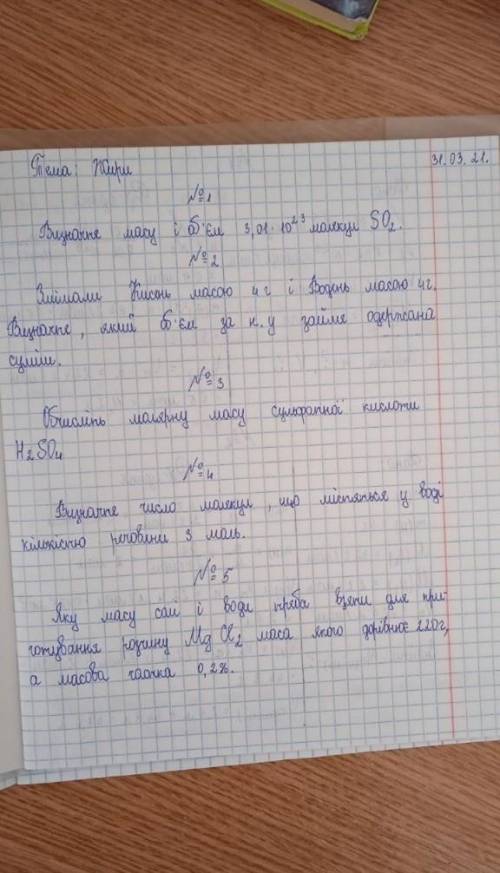 Тема: Жири 31.03.21.
№1
Визначте масу і об'єм 3,01·10²³ молекул SO₂.
№2
Змішали Кисень масою 4г і Водень масою 4г.
Визначте, який об'єм за н.у займе одержана
суміш.
№3
Обчисліть молярну масу сульфатної кислоти
H₂SO₄
№4
Визначте число молекул, що містяться у воді
кількістю речовини 3 моль.
№5
Яку масу солі і води треба взяти для при-
готування розчину MgCl₂ маса якого дорівнює 220г,
а масова частка 0,2%.